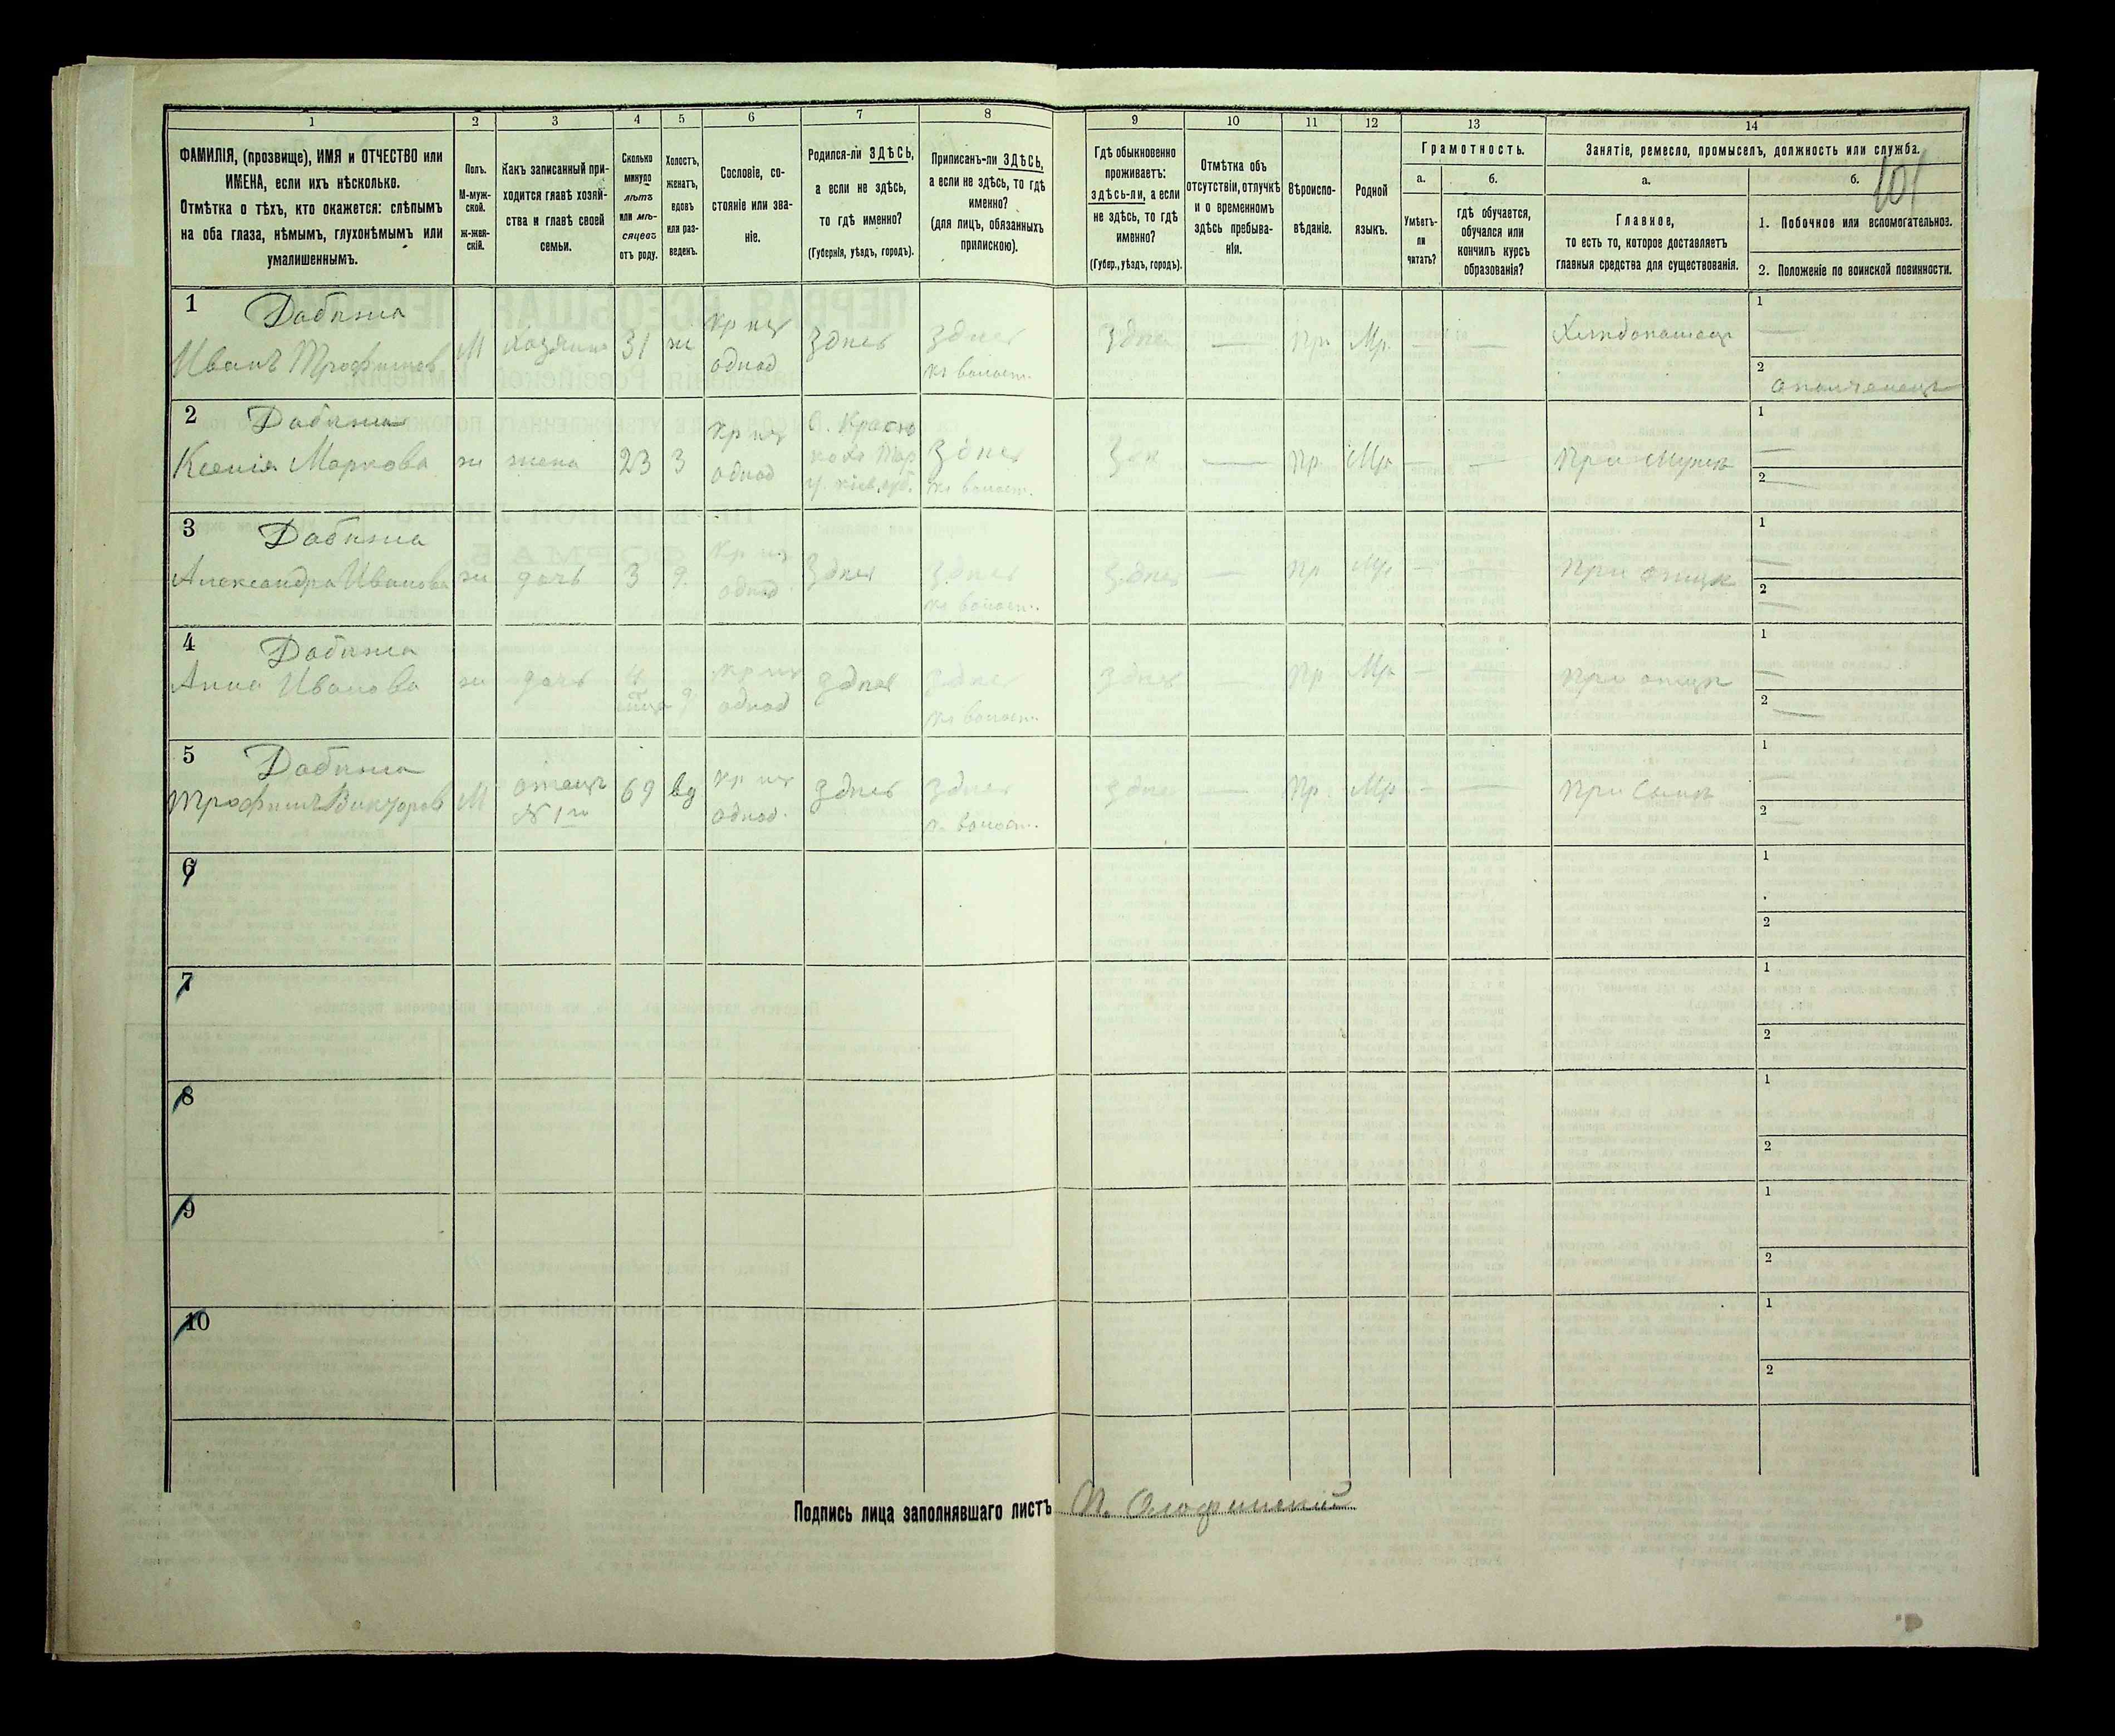 1 2 3 4 5 6 7 8 9 10 11 12 13 14
ФАМИЛІЯ, (прозвище), ИМЯ и ОТЧЕСТВО или
ИМЕНА, если ихъ нѣсколько.
Отмѣтка о тѣхъ, кто окажется: слѣпымъ
на оба глаза, нѣмымъ, глухонѣмымъ или
умалишеннымъ.
Полъ.
М-муж-
ской.
ж-жен-
скій.
Какъ записанный при-
ходится главѣ хозяй-
ства и главѣ своей
семьи.
Сколько
минуло
лѣтъ
или мѣ-
сяцевъ
отъ роду.
Холостъ,
женатъ,
вдовъ
или раз-
веденъ.
Сословіе, со-
стояніе или зва-
ніе.
Родился-ли ЗДѢСЬ,
а если не здѣсь,
то гдѣ именно?
(Губернія, уѣздъ, городъ).
Приписанъ-ли ЗДѢСЬ,
а если не здѣсь, то гдѣ
именно?
(для лицъ, обязанныхъ
припискою).
Гдѣ обыкновенно
проживаетъ:
здѣсь-ли, а если
не здѣсь, то гдѣ
именно?
(Губер., уѣздъ, городъ).
Отмѣтка объ
отсутствіи, отлучкѣ
и о временномъ
здѣсь пребыва-
ніи.
Вѣроиспо-
вѣданіе.
Родной
языкъ.
Грамотность.
а.
Умѣетъ-
ли
читать?
б.
гдѣ обучается,
обучался или
кончилъ курсъ
образованія?
Занятіе, ремесло, промыселъ, должность или служба.
101
а.
Главное,
то есть то, которое доставляетъ
главныя средства для существованія.
б.
1. Побочное или вспомогательное.
2. Положеніе по воинской повинности.
1 Дабижа
Иванъ Трофимовъ М хозяинъ 31 ж кр из однод здѣсь здѣсь здѣсь — Пр. Мр. — — Хлѣбопашецъ
1 —
2 ополченецъ
2 Дабижа
Ксенія Маркова ж жена 23 З кр из однод здѣсь — Пр Мр — — При мужѣ
1 —
2 —
3 Дабижа
Александра Иванова ж дочь 3 9 кр из однод здѣсь здѣсь здѣсь — Пр Мр — — При отцѣ
1 —
2 —
4 Дабижа
Анна Иванова ж дочь кр из однод здѣсь здѣсь здѣсь — Пр Мр — — При отцѣ
1 —
2 —
5 Дабижа
Трофимъ Викторовъ М отецъ № 1го 69 вд кр из однод. здѣсь здѣсь здѣсь — Пр. Мр — — При сынѣ
1 —
2 —
6
1
2
7
1
2
8
1
2
9
1
2
10
1
2
Подпись лица заполнявшаго листъ